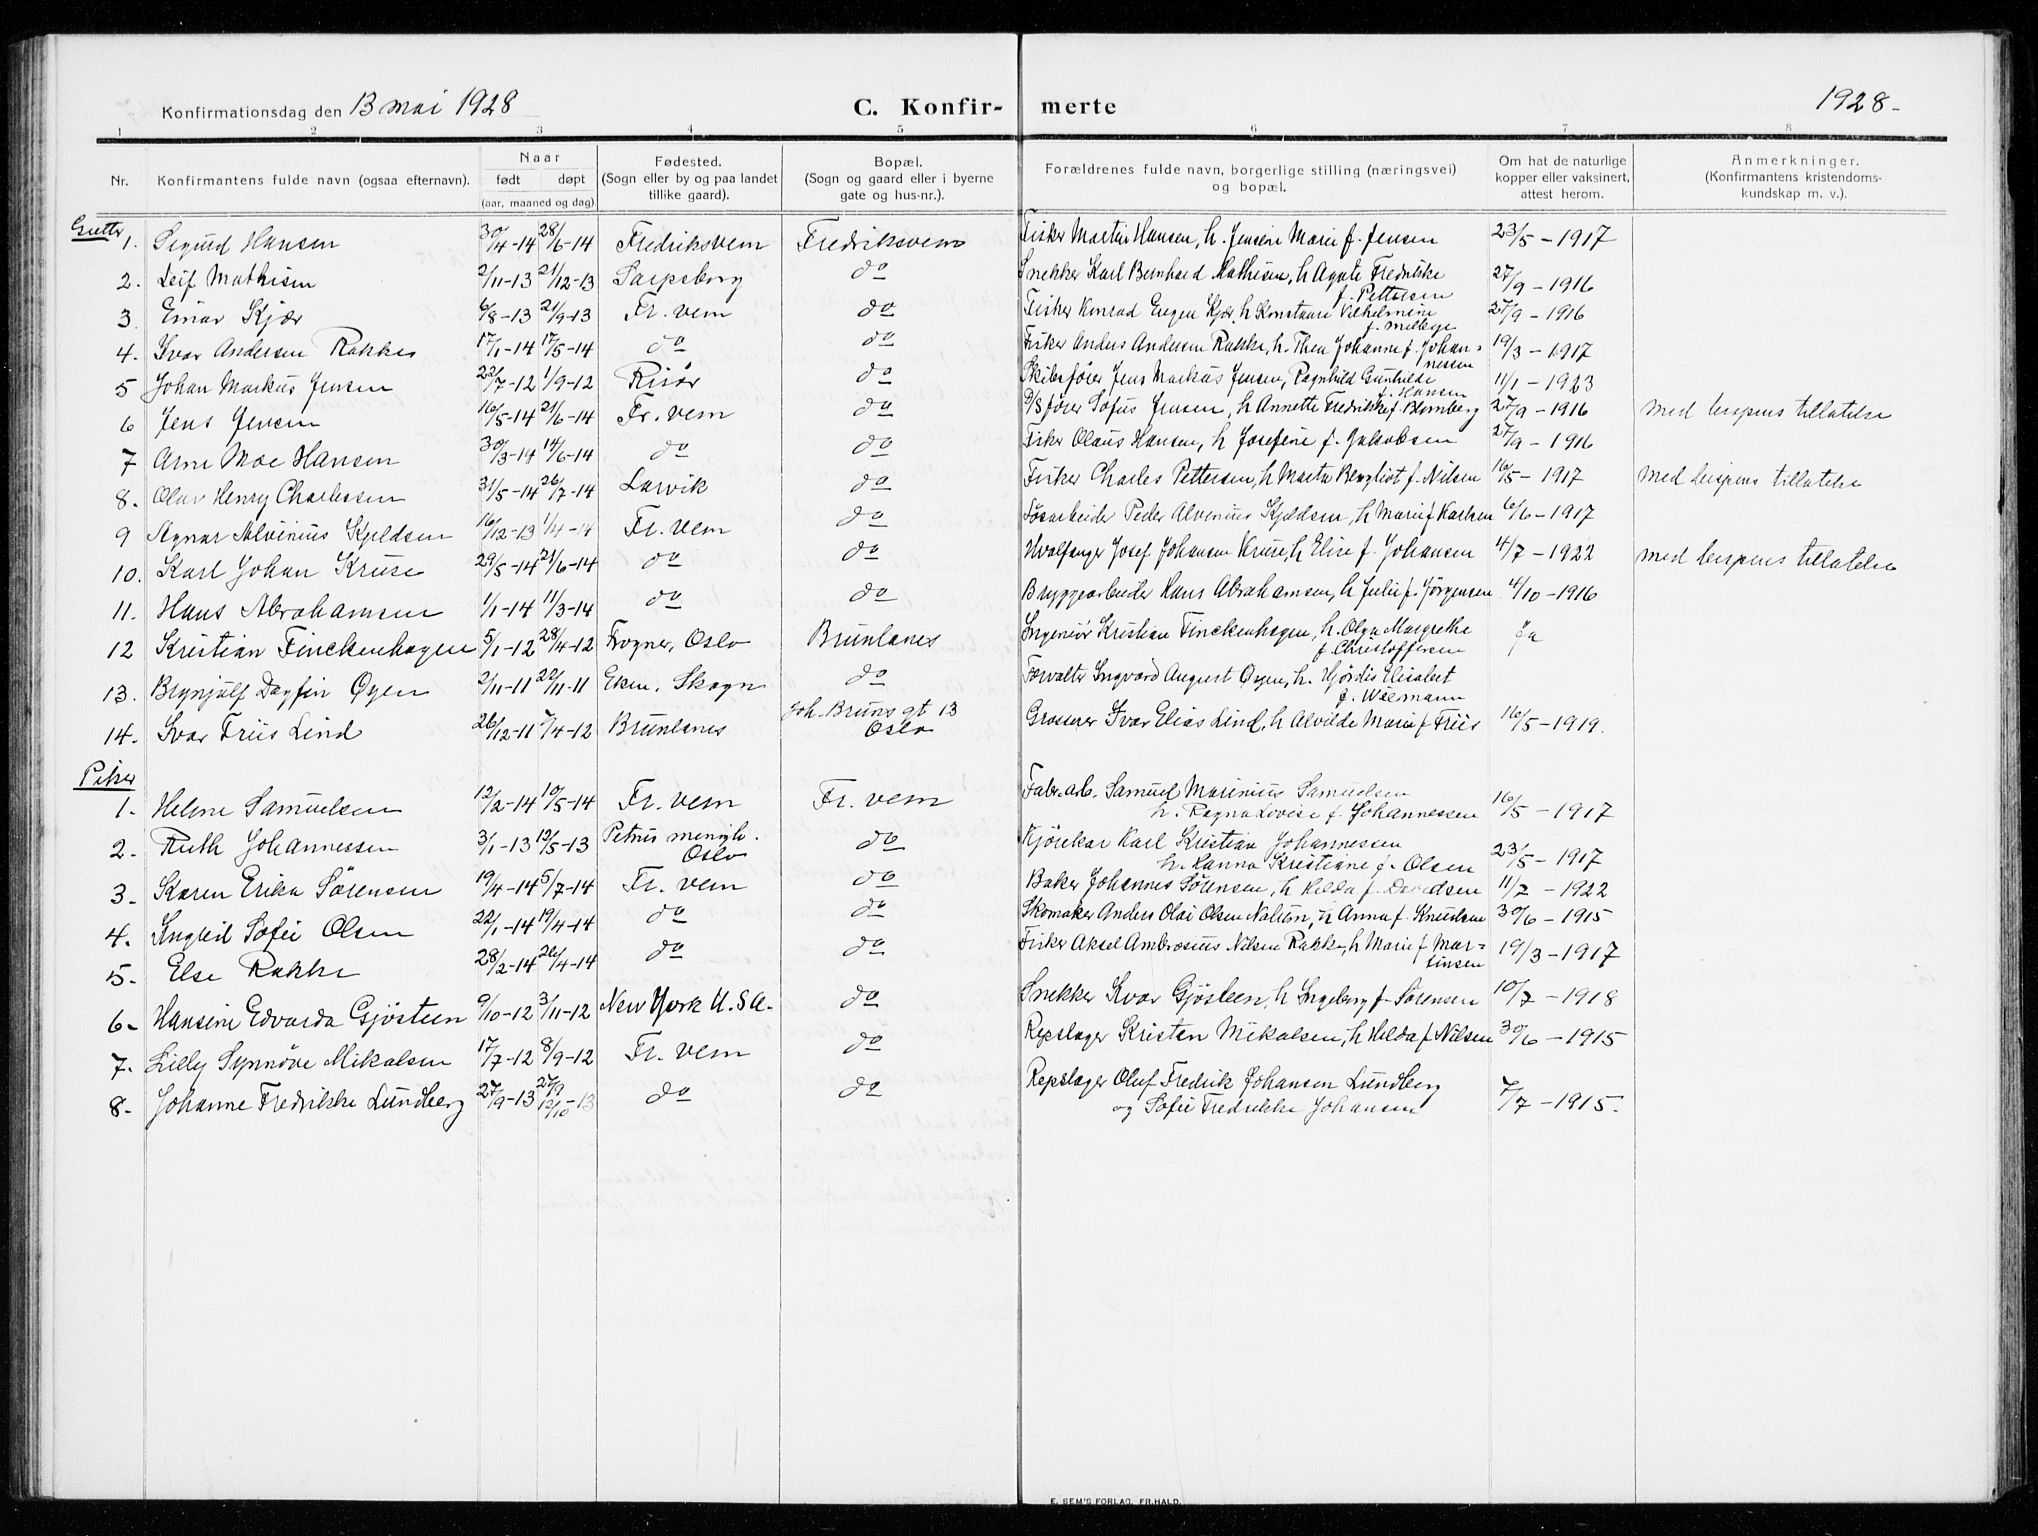 Konfirmationsdag den 13 mai 1928 C. Konfir- merte 1928-
1 2 3 4 5 6 7 8
Nr. Konfirmantens fulde navn (ogsaa efternavn). Naar født døpt (aar, maaned og dag). Fødested. (Sogn eller by og paa landet tillike gaard). Bopæl. (Sogn og gaard eller i byerne gate og hus-nr.). Forældrenes fulde navn, borgerlige stilling (næringsvei) og bopæl. Om hat de naturlige kopper eller vaksinert, attest herom. Anmerkninger. (Konfirmantens kristendoms-kundskap m. v.).
Gutter
1. Sigurd Hansen 30/4-14 28/6-14 Fredriksvern Fredriksvern Fisker Martin Hansen, h. Jensine Marie f. Jensen 23/5-1917
2. Leif Mathisen 2/11-13 21/12-13 Sarpsborg do Snekker Karl Bernhard Mathisen, h Agate Fredrikke f. Pettersen 27/9-1916
3. Einar Kjær 6/8-13 21/9-13 Fr. vern do Fisker Konrad Eugen Kjær, h Konstanse Vilhelmine f. 27/9-1916
4. Ivar Andersen Rakke 17/1-14 17/5-14 do do Fisker Anders Andersen Rakke, h. Thea Johanne f. Johannessen 19/3-1917
5 Johan Markus Jensen 22/7-12 1/9-12 Risør do Skibsfører Jens Markus Jensen, Ragnhild Gunhilde f. Hansen 11/1-1923
6 Jens Jensen 16/5-14 21/6-14 Fr. vern do D/S fører Sofus Jensen, h Annette Fredrikke f. Blomberg 27/9-1916 med bispens tillatelse
7 Arne Moe Hansen 30/3-14 14/6-14 do do Fisker Olaus Hansen, h Josefine f. Jakobsen 27/9-1916
8. Olav Henry Charlessen 31/5-14 26/7-14 Larvik do Fisker Charles Pettersen, h Marta Bergliot f. Nilsen 16/5-1917 med bispens tillatelse
9 Agnar Alvinius Kjeldsen 16/12-13 1/4-14 Fr. vern do Løsarbeider Peder Alvinius Kjeldsen, h Marie f Karlsen 6/6-1917
10. Karl Johan Kruse 29/5-14 21/6-14 do do Hvalfanger Josef Johansen Kruse, h Elise f. Johansen 4/7-1922 med bispens tillatelse
11. Hans Abrahamsen 1/1-14 11/3-14 do do Bryggearbeider Hans Abrahamsen, h Julie f. Jørgensen 4/10-1916
12 Kristian Finckenhagen 5/1-12 28/4-12 Frogner, Oslo Brunlanes Ingeniør Kristian Finckenhagen, h. Olga Margrethe f Christoffersen Ja
13. Brynjulf Dagfin Øyen 2/11-11 22/11-11 Ekne, Skogn do Forvalter Ingvard August Øyen, h. Hjørdis Elisabet f. Weemann
14. Ivar Friis Lind 26/12-11 7/4-12 Brunlanes Joh. Bruns gt 13 Oslo Grosserer Ivar Elias Lind, h Alvilde Marie f Friis 16/5-1919.
Piker
1. Helene Samuelsen 12/2-14 10/5-14 Fr. vern Fr. vern Fabr. arb. Samuel Marinius Samuelsen h. Ragna Lovise f. Johannessen 16/5-1917
2. Ruth Johannessen 3/1-13 12/5-13 Petrus menigh. Oslo do Kjørekar Karl Kristian Johannessen h. Hanna Kristiane f. Olsen 23/5-1917
3. Karen Erika Sørensen 19/4-14 5/7-14 Fr. vern do Baker Johannes Sørensen, h Hilda f. Davidsen 11/2-1922
4. Ingrid Sofie Olsen 22/1-14 19/4-14 do do Skomaker Anders Olai Olsen Nalum, h Anna f. Knudsen 30/6-1915
5. Else Rakke 28/2-14 26/4-14 do do Fisker Aksel Ambrosius Nilsen Rakke, h Marie f Martinsen 19/3-1917
6- Hansine Edvarda Gjösteen 9/10-12 3/11-12 New York U.S.A. do Snekker Ivar Gjösteen, h Ingeborg f. Sørensen 10/7-1918
7. Lilly Synnöve Mikalsen 17/7-12 8/9-12 Fr. vern do Repslager Kristen Mikalsen, h Hilda f Nilsen 30/6-1915
8- Johanne Fredrikke Lundberg 27/9-13 27/9 12/10-13 do do Repslager Oluf Fredrik Johansen Lundberg og Sofie Fredrikke Johansen 7/7-1915.
E. SEM'S FORLAG, FR.HALD.